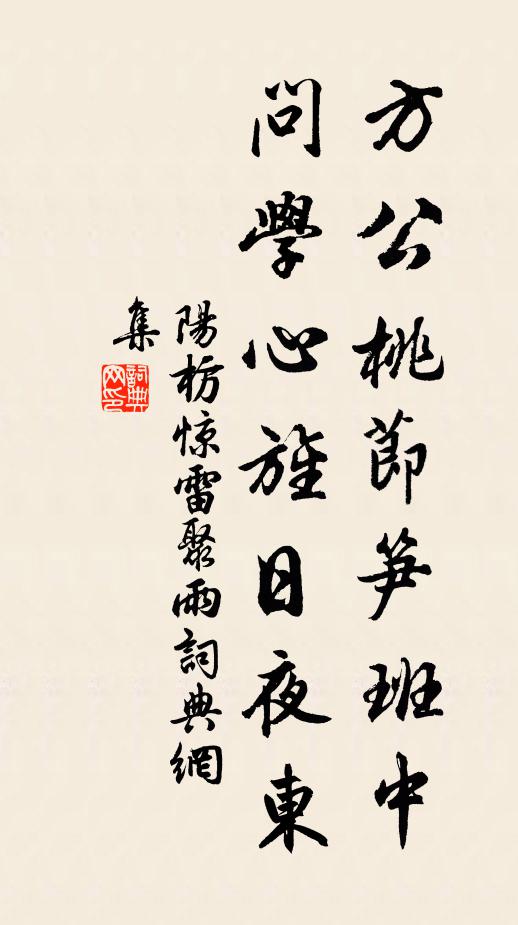 方公桃節笋班中
問學心旌日夜東
陽枋惊雷聚雨詞典網
集
詞典網印